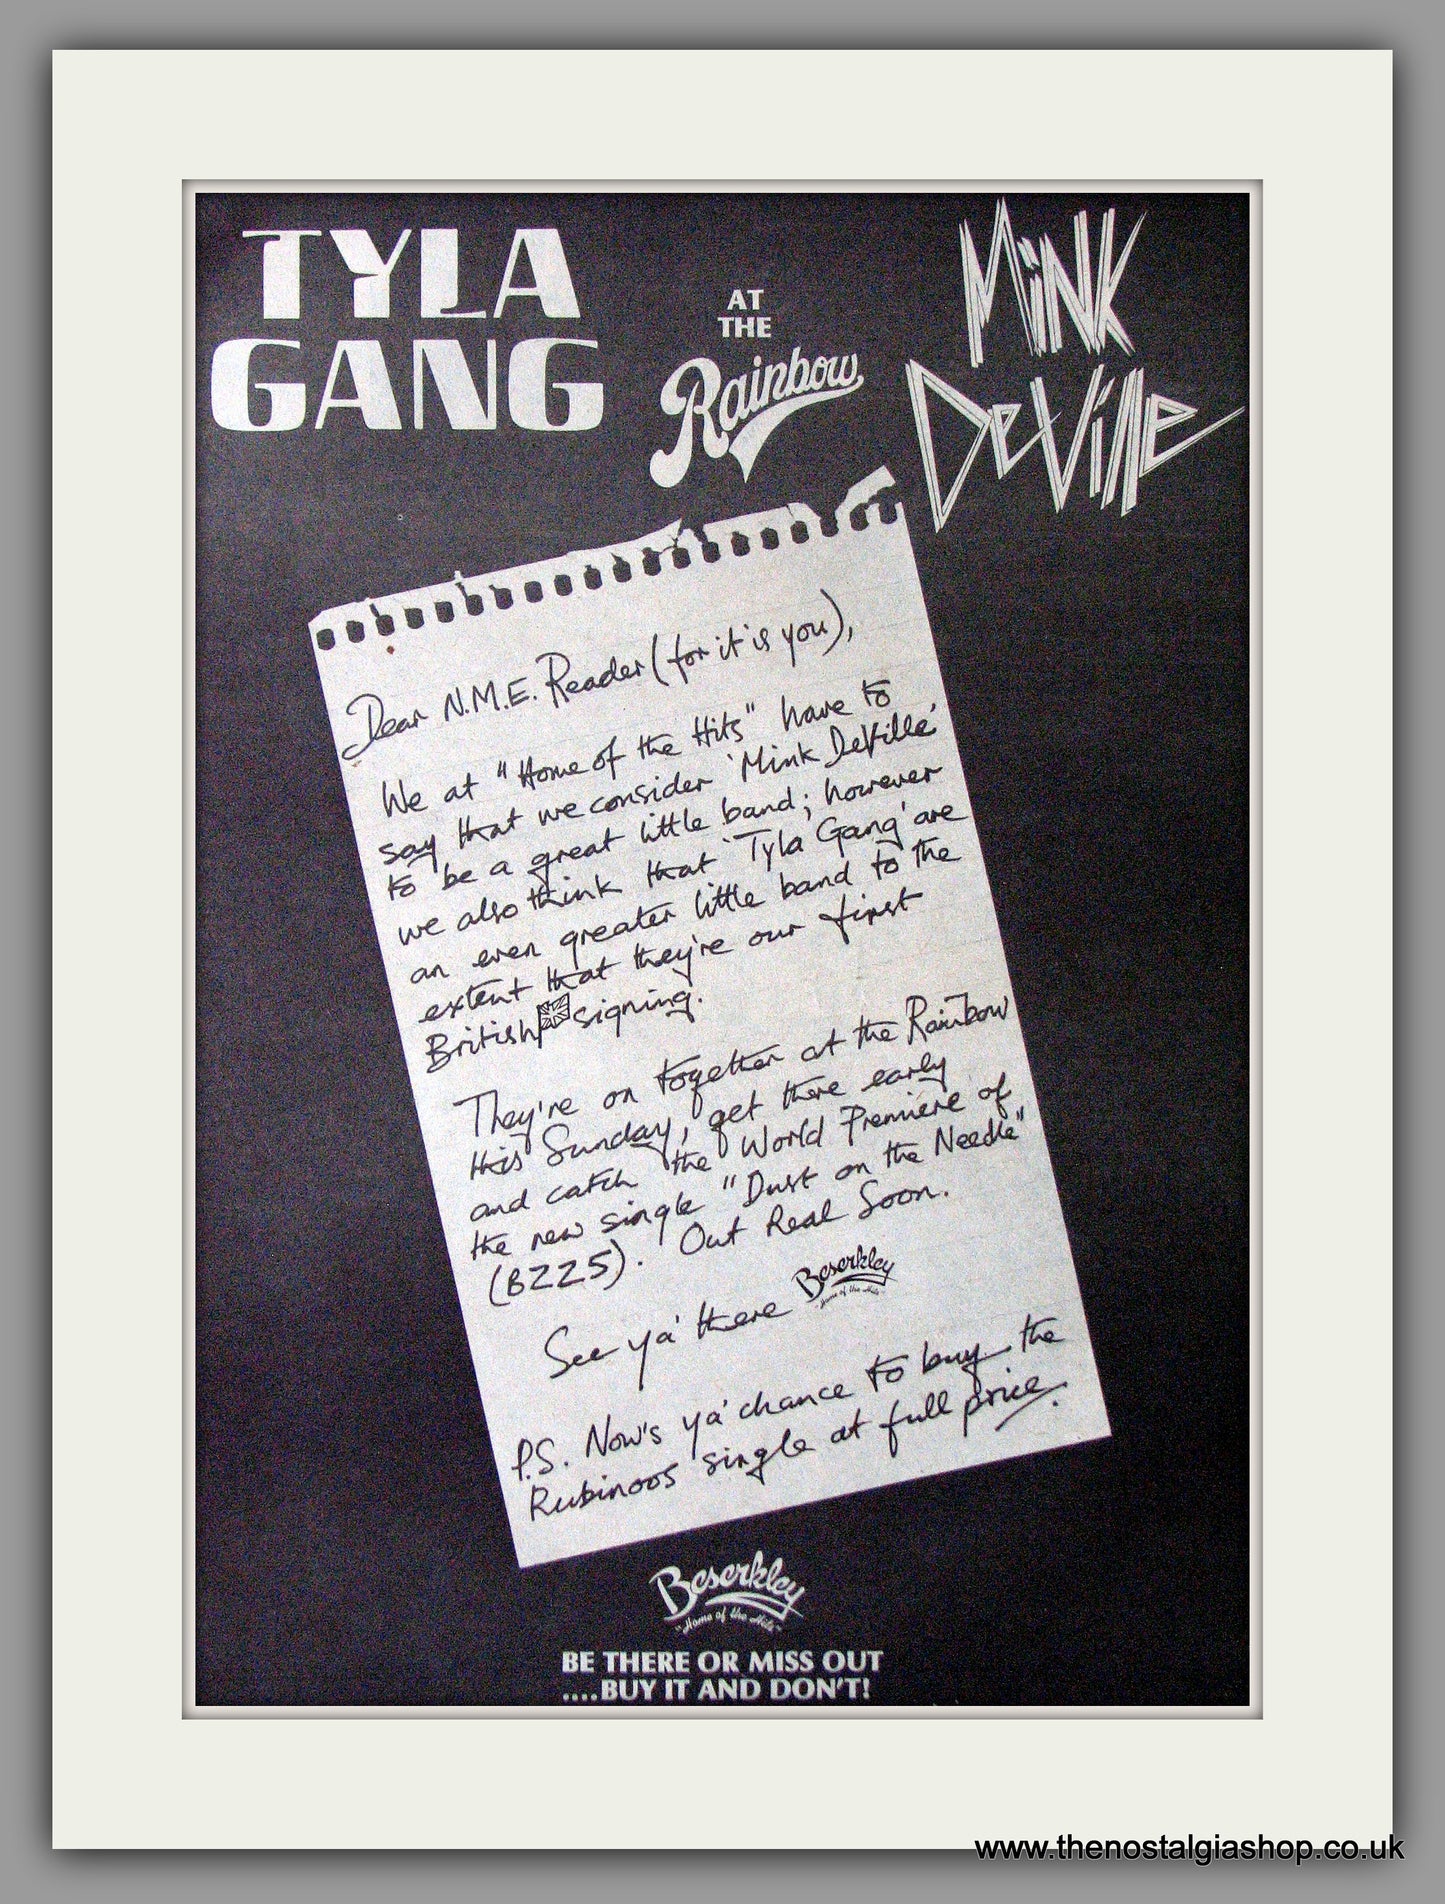 TYLA
GANG
AT
THE
Rainbow
MiNK
DeVille
Dear N.M.E. Reader (for it is you),
We at "Home of the Hits" have to
say that we consider 'Mink DeVille'
to be a great little band; however
we also think that 'Tyla Gang' are
an even greater little band to the
extent that they're our first
British signing.
They're on together at the Rainbow
this Sunday, get there early
and catch the World Premiere of
the new single "Dust on the Needle"
(BZZ5). Out Real Soon.
See ya' there Beserkley
"Home of the Hits"
P.S. Now's ya' chance to buy the
Rubinoos single at full price.
Beserkley
"Home of the Hits"
BE THERE OR MISS OUT
....BUY IT AND DON'T!
www.thenostalgiashop.co.uk